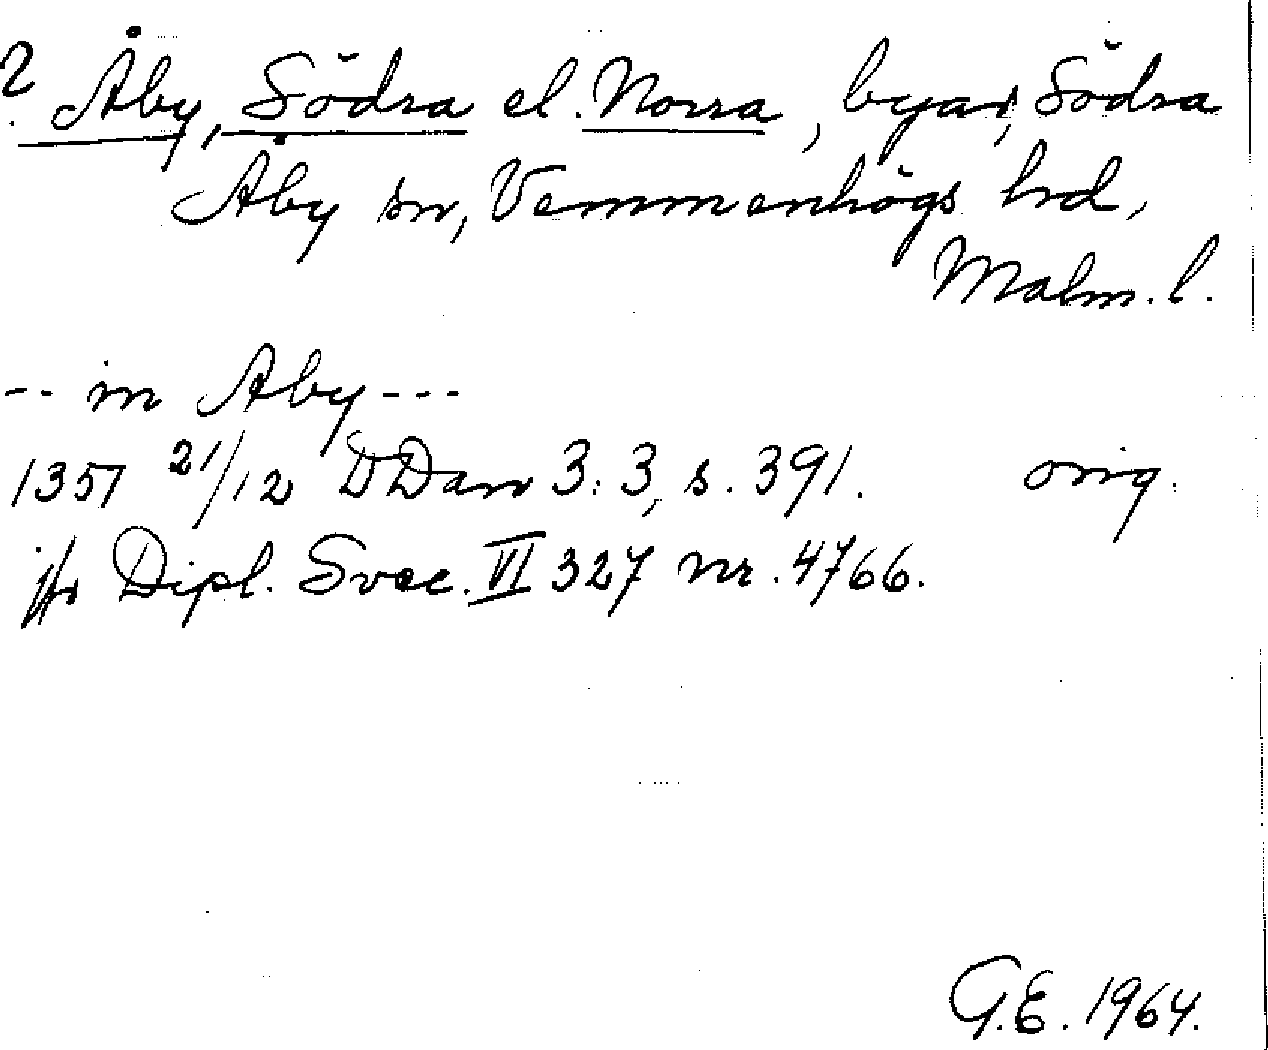 ? Åby, Södra el. Norra, byar, Södra
Åby sn, Vemmenhögs hd,
Malm. l.
-- in Aby ---
1351 21/12 DDan 3:3, s. 391. orig.
jfr Dipl. Svec. VI 327 nr. 4766.
G.E. 1964.